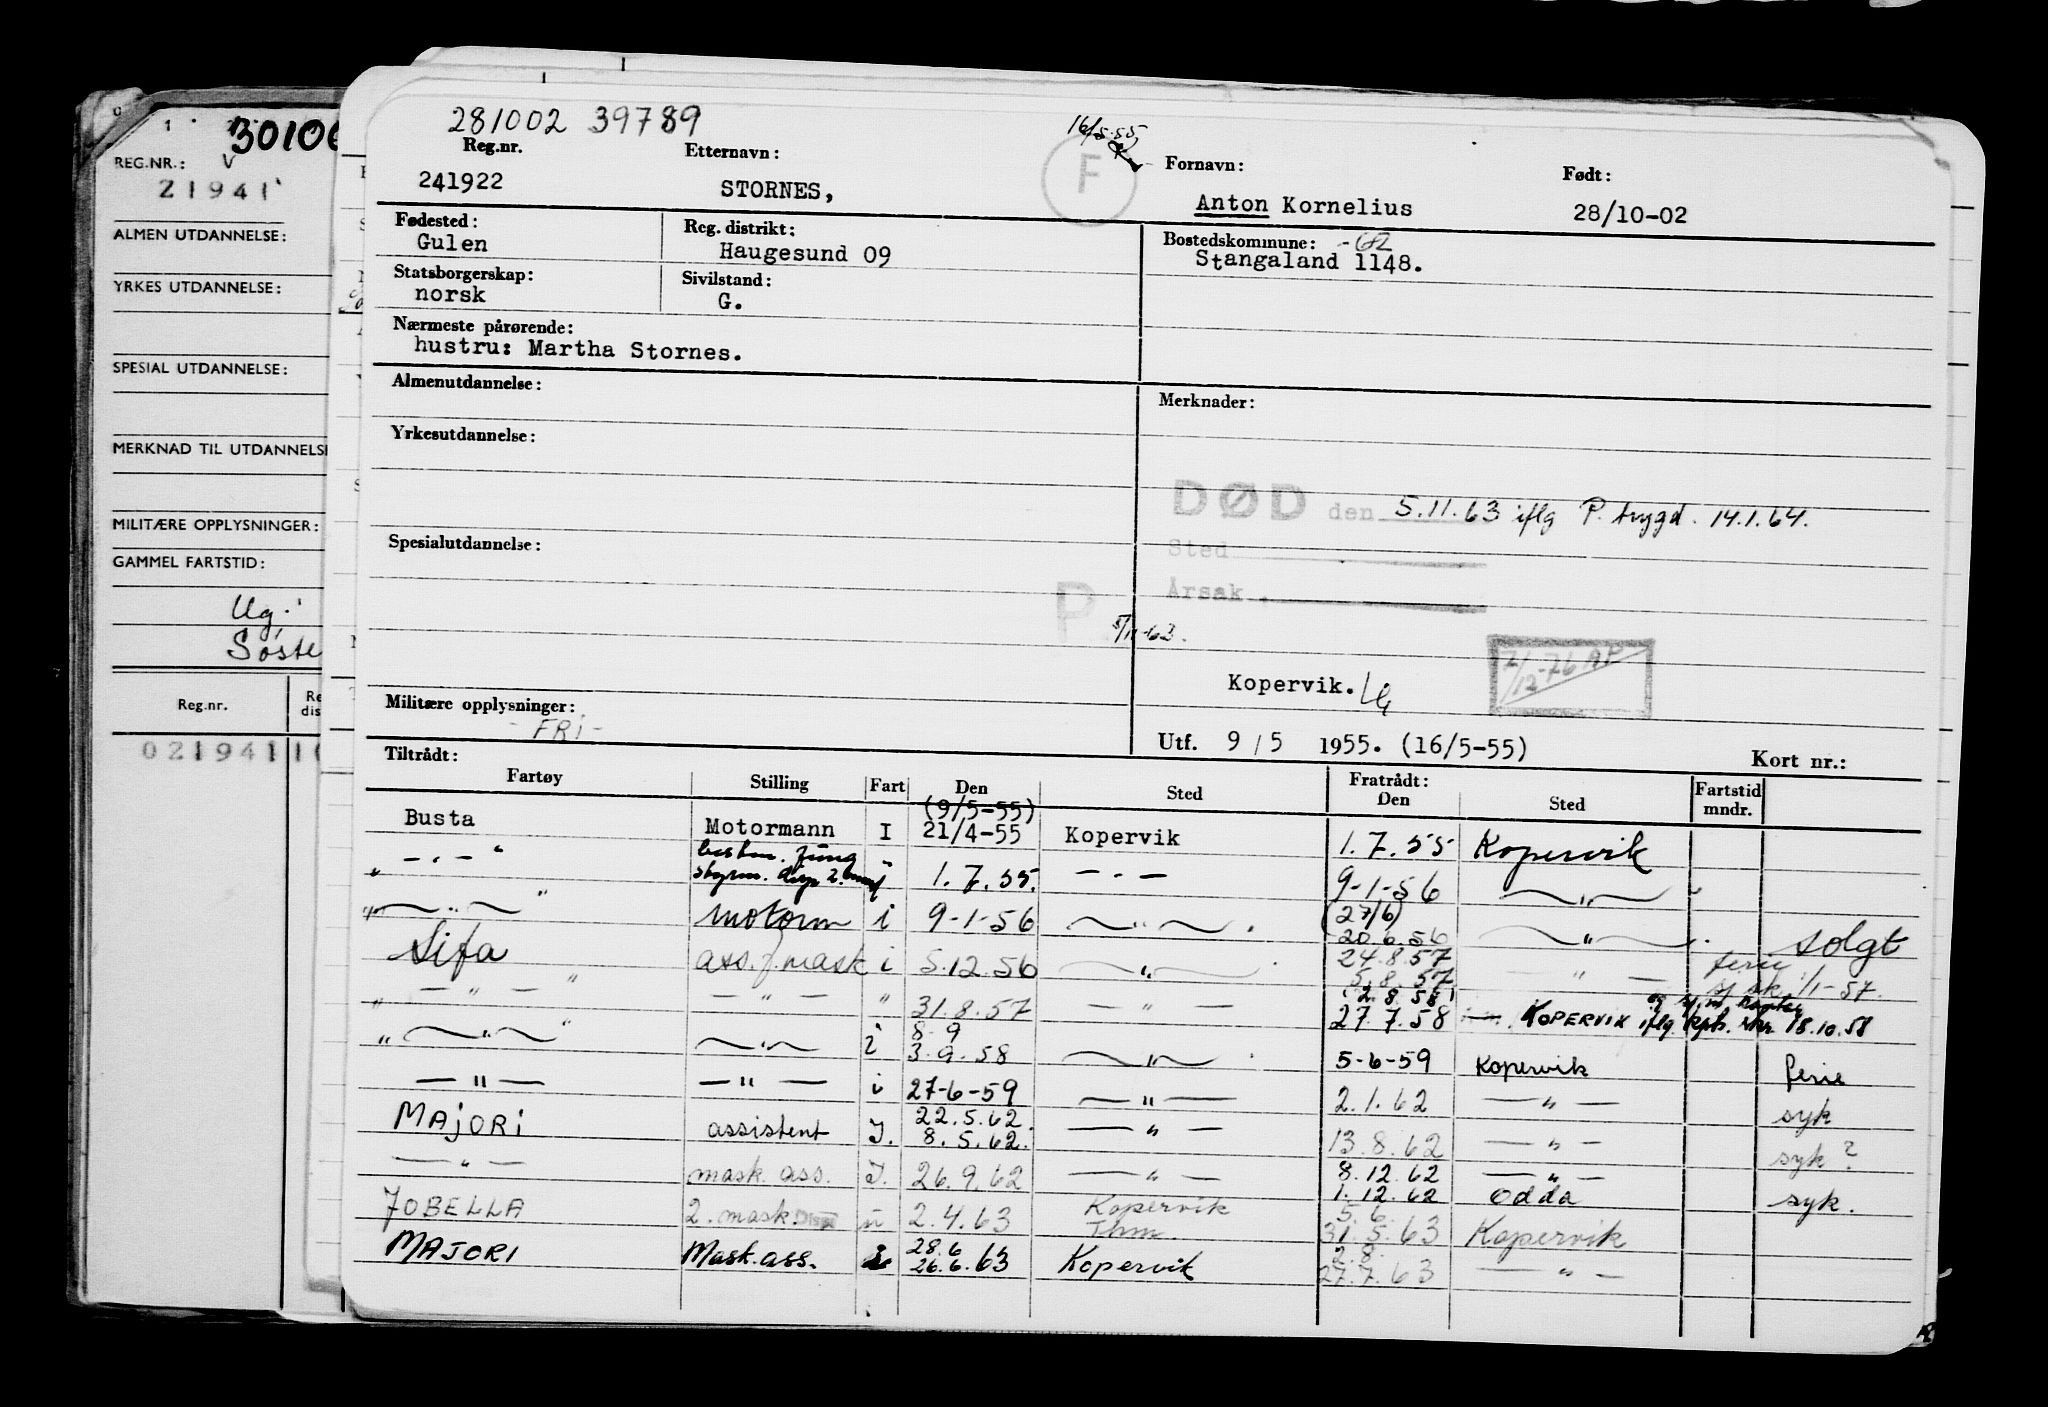 30106
REG.NR.: V
21941
ALMEN UTDANNELSE:
YRKES UTDANNELSE:
SPESIAL UTDANNELSE:
MERKNAD TIL UTDANNELSE
MILITÆRE OPPLYSNINGER:
GAMMEL FARTSTID:
Ug.
Søste
Reg.nr. Re
dis
0219411
281002 39789
16/5-55
Reg.nr. Etternavn: F Fornavn: Født:
241922 STORNES, Anton Kornelius 28/10-02
Fødested: Reg. distrikt: Bostedskommune: -62
Gulen Haugesund 09 Stangaland 1148.
Statsborgerskap: Sivilstand:
norsk G.
Nærmeste pårørende:
hustru: Martha Stornes.
Almenutdannelse: Merknader:
Yrkesutdannelse:
DØD den 5.11.63 iflg P. trygd. 14.1.64.
Spesialutdannelse: Sted
Årsak
P. 5/11-63.
7/12-76 AP
Kopervik.
Militære opplysninger:
-FRI-
Utf. 9/5 1955. (16/5-55) Kort nr.:
Tiltrådt: Fratrådt:
Fartøy Stilling Fart Den Sted Den Sted Fartstid mndr.
(9/5-55)
Busta Motormann I 21/4-55 Kopervik 1.7.55 Kopervik
" — " — " bestm. jung
styrm. disp 2. " 1.7.55. — " — 9-1-56 — " —
(27/6)
" — " — " motorm i 9-1-56 — " — 20.6.56 — " — solgt
Sifa ass. f. mask i 5.12.56 — " — 24.8.57 ferie
" 5.8.57 — " — 1/1-57.
(2.8.58)
" — " — — " — " 31.8.57 — " — 27.7.58 — KOPERVIK iflg kpt. skr 18.10.58
8 9
" — " — " — " — i 3.9.58 — " — 5-6-59 Kopervik ferie
— " — — " — i 27-6-59 — " — 2.1.62 — " — syk
22.5.62
MAJORI assistent I. 8.5.62. — " — 13.8.62 — " — syk?
— " — mask. ass. I. 26.9.62 — " — 8.12.62 — " —
1.12.62 Odda syk.
JOBELLA 2. mask. Disp u 2.4.63 Kopervik 5.6.
Thm. 31.5.63 Kopervik
28.6 2.8.
MAJORI Mask. ass. 26.6.63 Kopervik 27.7.63 — " —